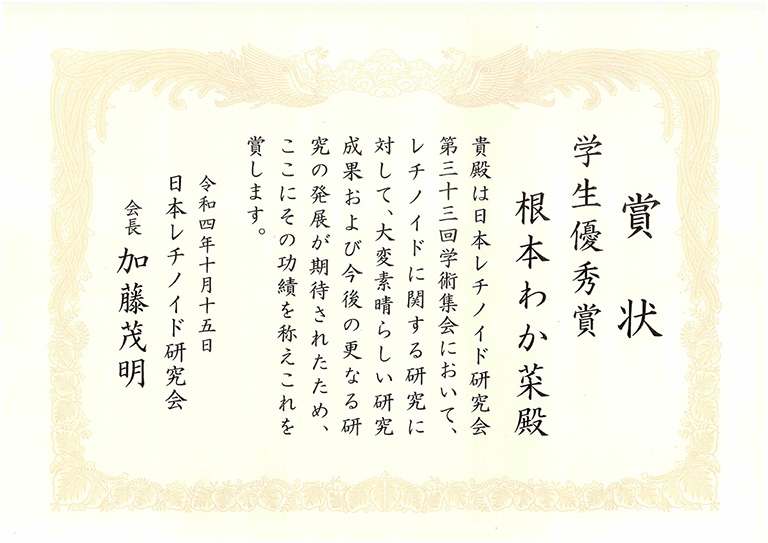 賞状
学生優秀賞
根本わか菜殿
貴殿は日本レチノイド研究会
第三十三回学術集会において、
レチノイドに関する研究に
対して、大変素晴らしい研究
成果および今後の更なる研
究の発展が期待されたため、
ここにその功績を称えこれを
賞します。
令和四年十月十五日
日本レチノイド研究会
会長 加藤茂明